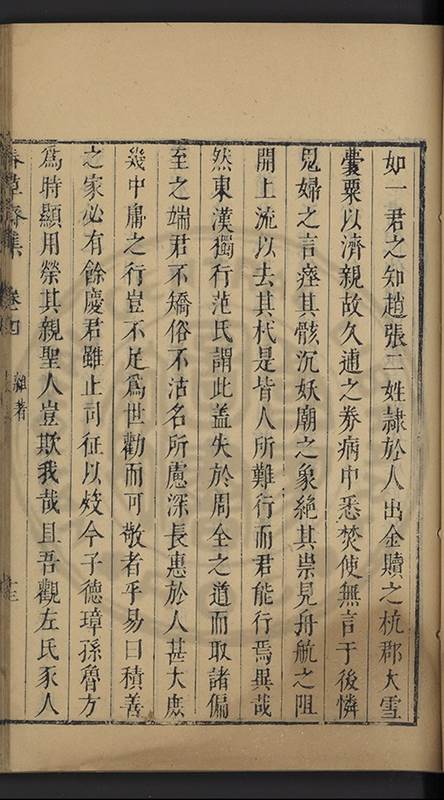 如一君之知趙張二姓隷於人出金贖之杭郡大雪
囊粟以濟親故久逋之券病中悉焚使無言于後憐
鬼婦之言瘞其骸沉妖廟之象絶其祟見舟航之阻
開上流以去其杙是皆人所難行而君能行焉異哉
然東漢獨行范氏謂此盖失於周全之道而取諸偏
至之端君不矯俗不沽名所慮深長惠於人甚大庶
幾中庸之行豈不足爲世勸而可敬者乎易曰積善
之家必有餘慶君雖止司征以歿今子德璋孫魯方
爲時顯用榮其親聖人豈欺我哉且吾觀左氏豕人
春草齋集 卷四 雜著 十三